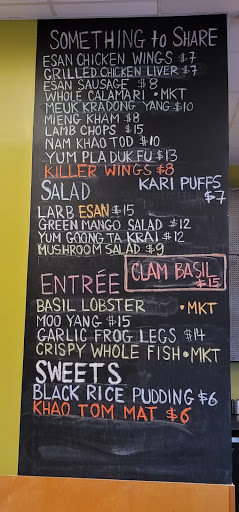 SOMETHING to SHARE
ESAN CHICKEN WINGS $7
GRILLED CHICKEN LIVER $7
ESAN SAUSAGE $8
WHOLE CALAMARI • MKT
MEUK KRADONG YANG $10
MIENG KHAM $8
LAMB CHOPS $15
NAM KHAO TOD $10
YUM PLA DUK FU $13
KILLER WINGS $8
KARI PUFFS $7
SALAD
LARB ESAN $15
GREEN MANGO SALAD $12
YUM GOONG TA KRAI $12
MUSHROOM SALAD $9
CLAM BASIL $15
ENTRÉE
BASIL LOBSTER • MKT
MOO YANG $15
GARLIC FROG LEGS $14
CRISPY WHOLE FISH • MKT
SWEETS
BLACK RICE PUDDING $6
KHAO TOM MAT $6